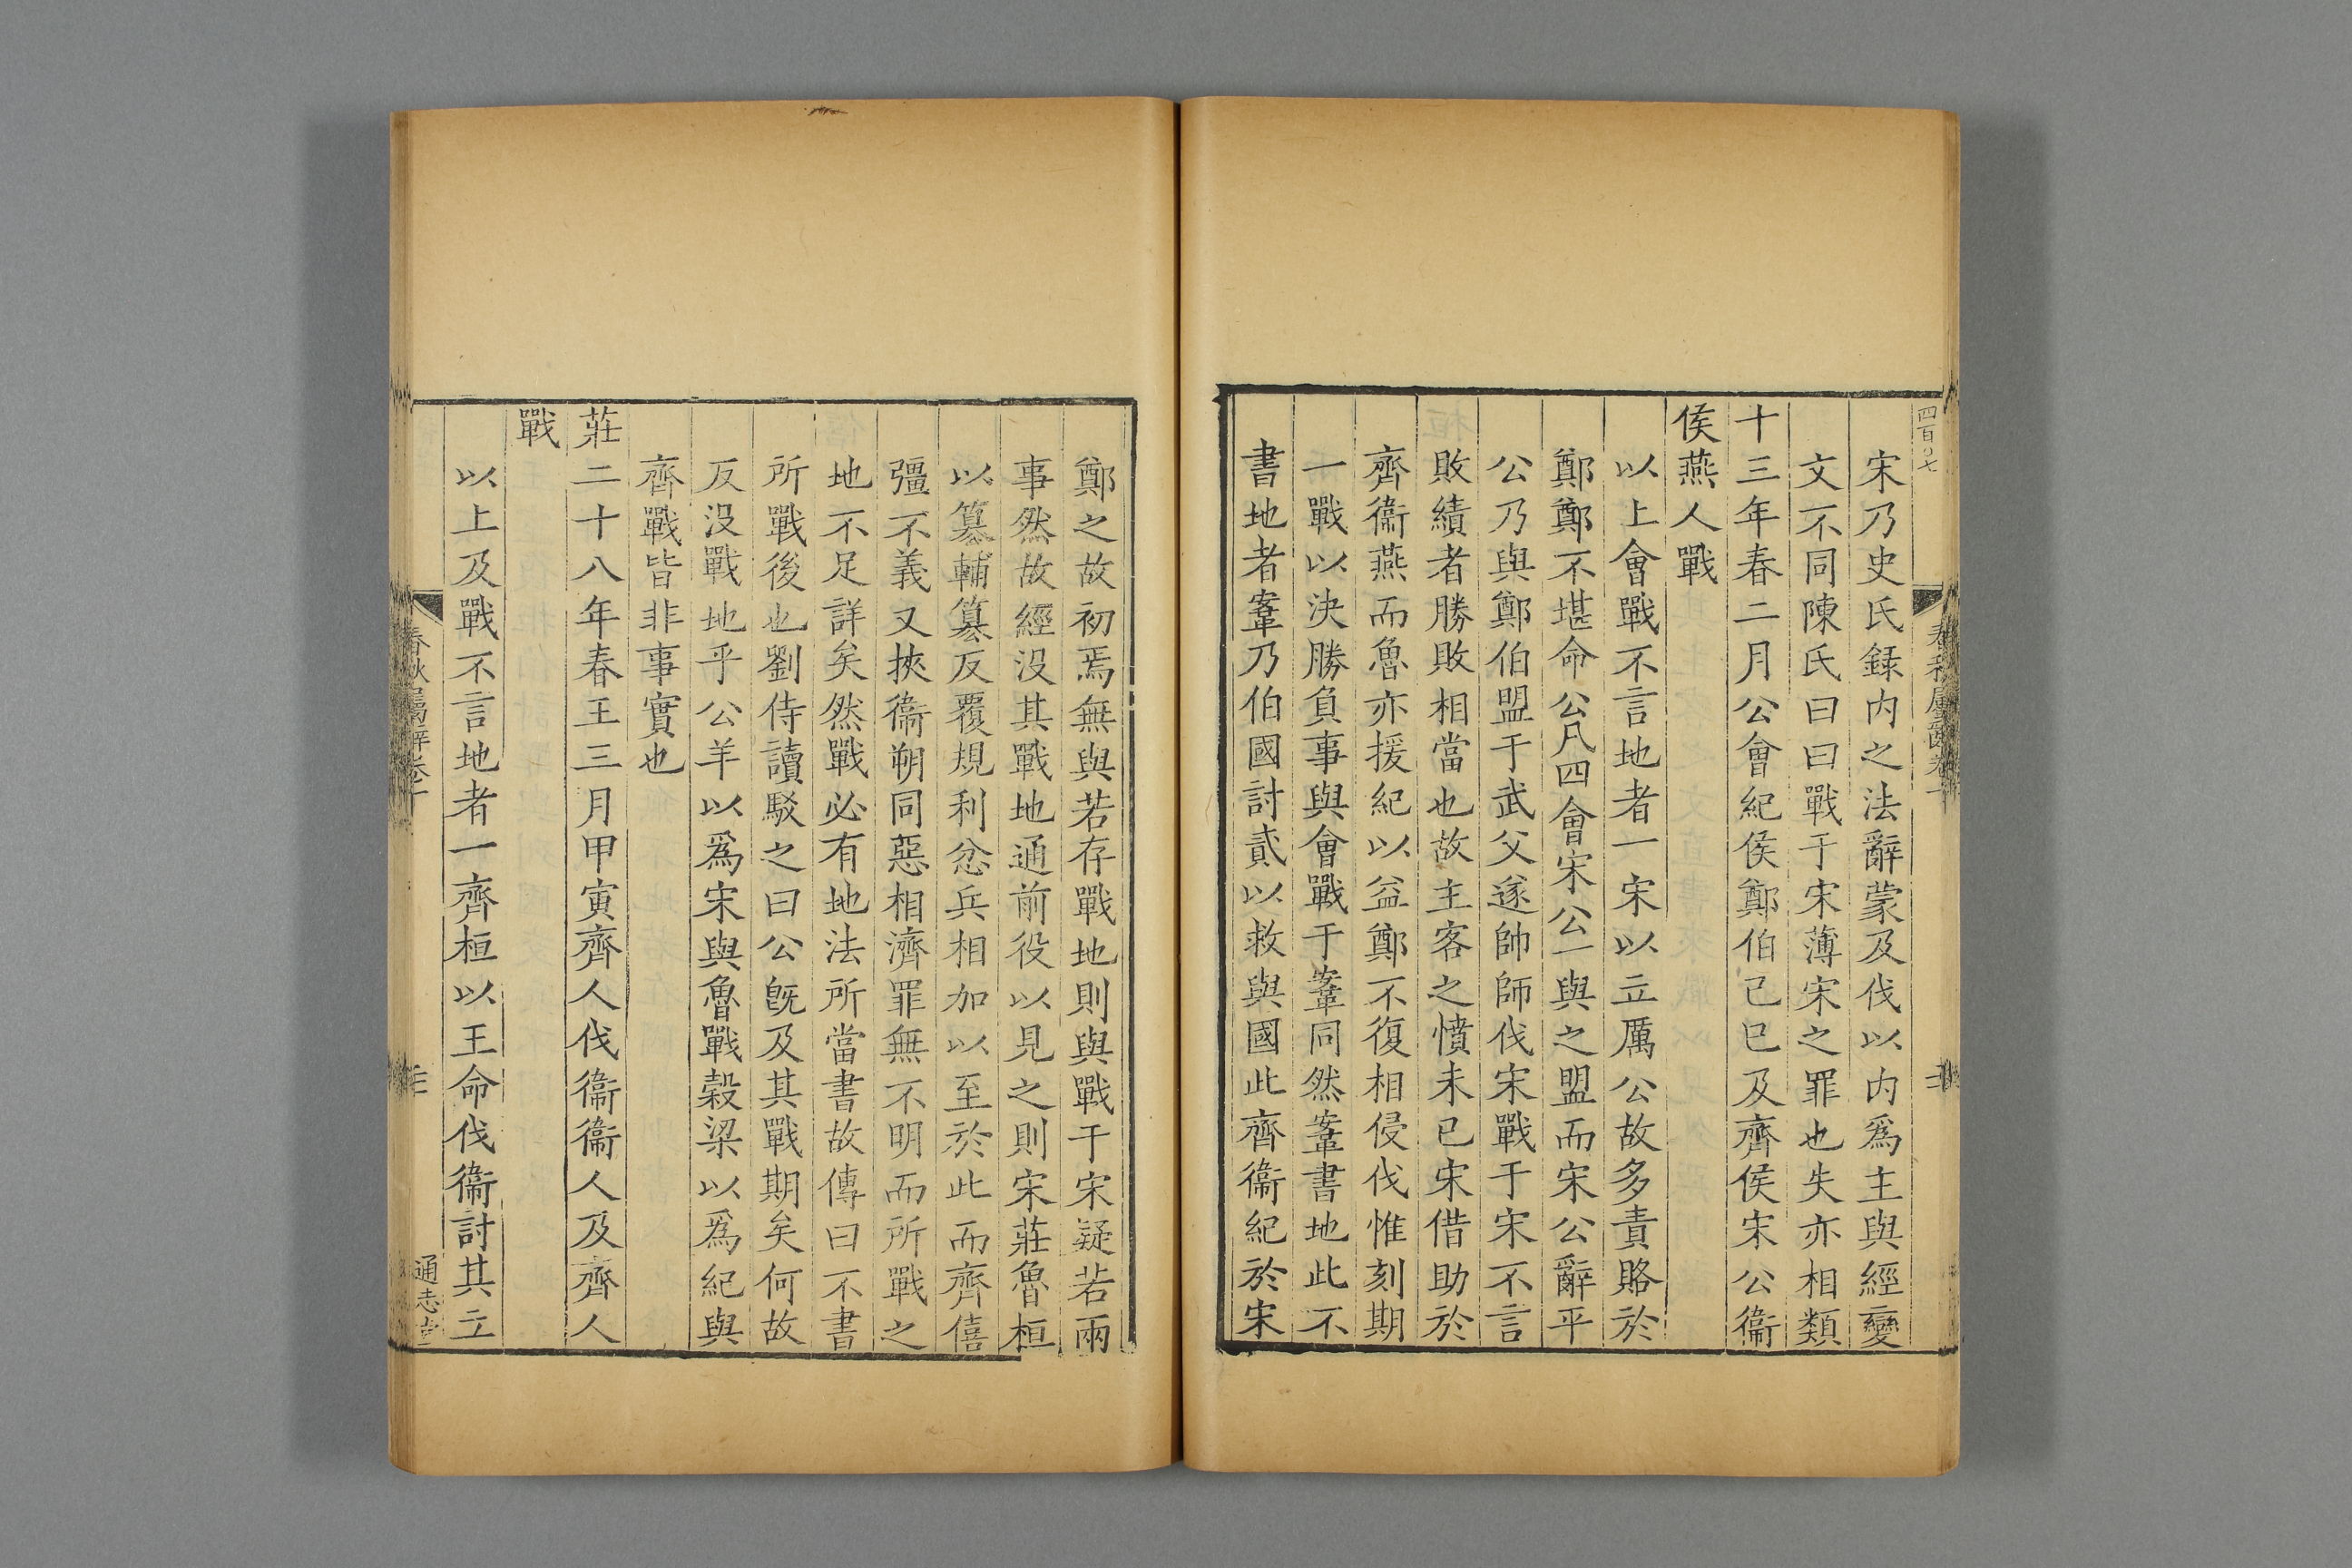 四百〇七
宋乃史氏録内之法辭蒙及伐以内爲主與經變
文不同陳氏曰曰戰于宋薄宋之罪也失亦相類
十三年春二月公會紀侯鄭伯己巳及齊侯宋公衞
侯燕人戰
以上會戰不言地者一宋以立厲公故多責賂於
鄭鄭不堪命公凡四會宋公一與之盟而宋公辭平
公乃與鄭伯盟于武父遂帥師伐宋戰于宋不言
敗績者勝敗相當也故主客之憤未已宋借助於
齊衞燕而魯亦援紀以益鄭不復相侵伐惟刻期
一戰以決勝負事與會戰于鞌同然鞌書地此不
書地者鞌乃伯國討貳以救與國此齊衞紀於宋
鄭之故初焉無與若存戰地則與戰于宋疑若兩
事然故經没其戰地通前役以見之則宋莊魯桓
以篡輔篡反覆規利忿兵相加以至於此而齊僖
彊不義又挾衞朔同惡相濟罪無不明而所戰之
地不足詳矣然戰必有地法所當書故傳曰不書
所戰後也劉侍讀駁之曰公旣及其戰期矣何故
反没戰地乎公羊以爲宋與魯戰穀梁以爲紀與
齊戰皆非事實也
莊二十八年春王三月甲寅齊人伐衞衞人及齊人
戰
以上及戰不言地者一齊桓以王命伐衞討其立
春秋屬辭卷十
通志堂